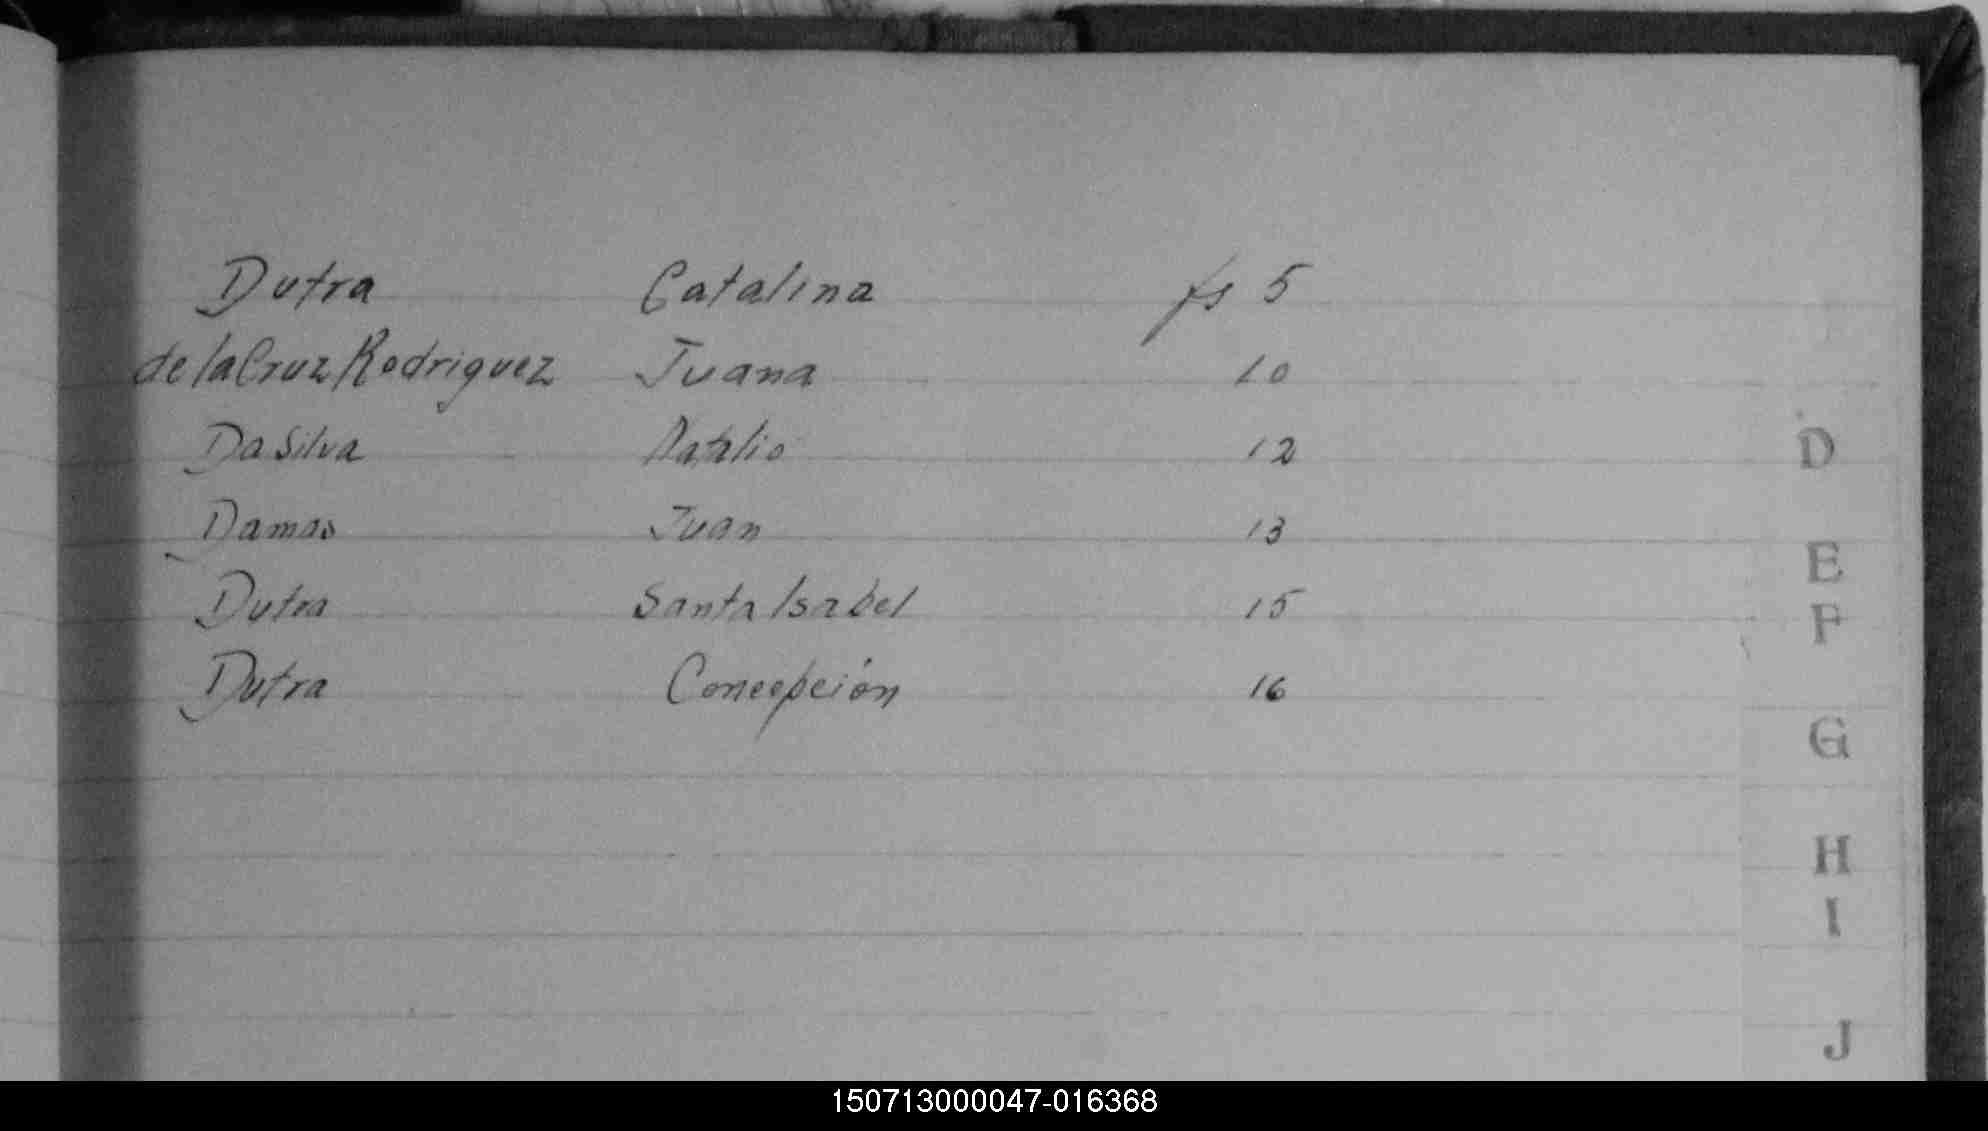 Dutra Catalina fs 5
de la Cruz Rodriguez Juana 10
Da Silva Natalio 12
Damas Juan 13
Dutra Santa Isabel 15
Dutra Concepción 16
D
E
F
G
H
I
J
150713000047-016368